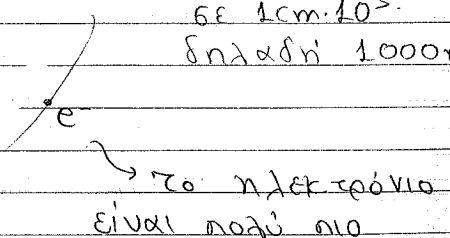 σε 1cm·10⁵·
δηλαδή 1000
e⁻
το ηλεκτρόνιο
είναι πολύ πιο